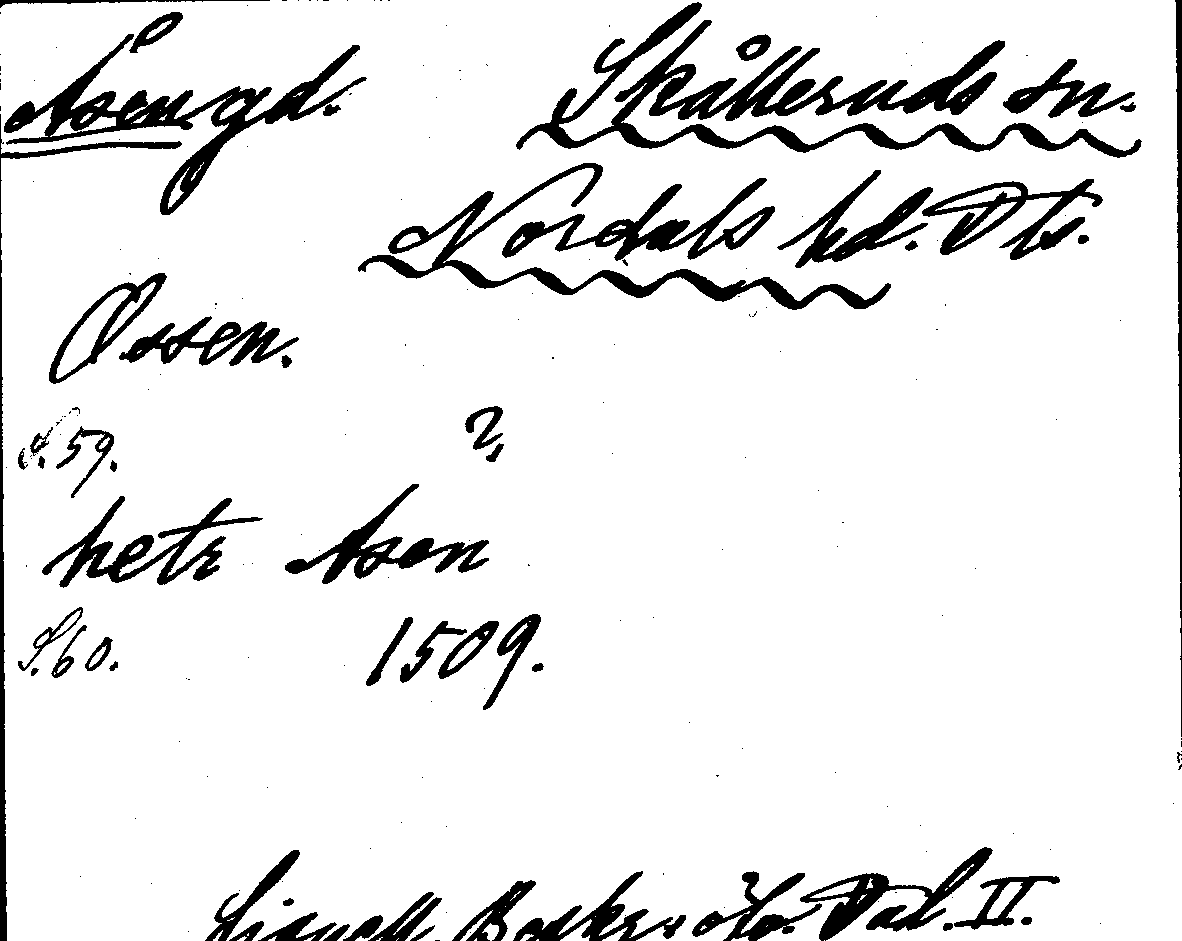 Åsen, gd. Skålleruds sn.
Nordals hd. Dls.
Ossen.
S. 59. ?
hetr Asen
S. 60. 1509.
Lignell, Beskr. ö. Dal. II.